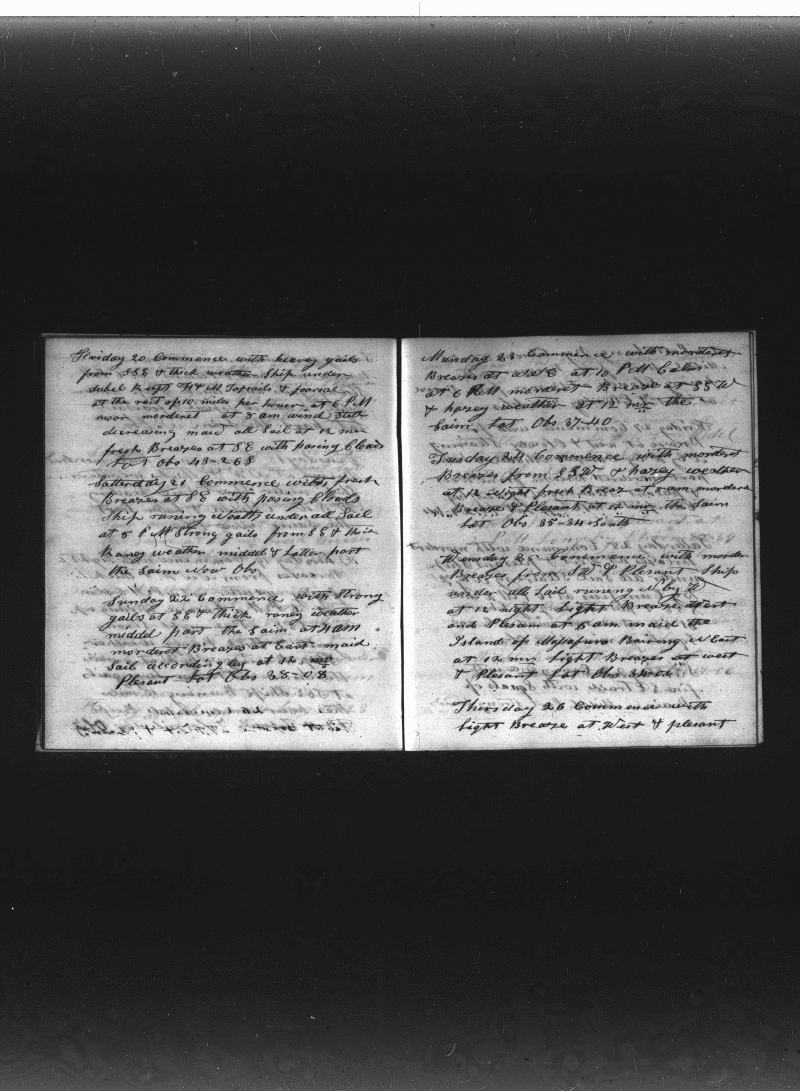 Friday 20 Commence with heavey gails
from SSE & thick weather Ship under
dubel Reeft F & M Topsails & foarsail
at the rait of 10 miles per houer at 6 PM
moor morderet at 8 am wind still
decreasing maid all Sail at 12 mn
fresh Breazes at SE with pasing Clouds
Lat Obs 43-26 S
Satterday 21 Commence with fresh
Breazes at SE with pasing Clouds
Ship runing North under all Sail
at 8 PM Strong gails from SE & thick
Raney weather middel & Latter part
the Saim Now Obs
Sunday 22 Commence with Strong
gails at SE & thick raney weather
middel part the Saim at 4 am
morderet Breazes at East maid
Sail accordingley at 12 mn
Plesant Lat Obs 38-08
Munday 23 Commence with morderet
Breazes at at 10 PM Calm
at 6 morderet Breaze at SSW
& hazey weather at 12 mn the
Saim Lat Obs 37-40
Tuesday 24 Commence with morderet
Breazes from SSW & hazey weather
at 12 Night fresh Breaz at 8 am morderet
Breaze & Plesant at 12 mn the Saim
Lat Obs 35-34 South
Wensday 25 Commence with morderet
Breazes from SW & Plesant Ship
under all Sail runing N by W
at 12 night Light Breaze West
and Plesant at 8 am maid the
Island of Bairing N East
at 12 mn Light Breazes at west
& Plesant Lat Obs
Thirsday 26 Commence with
Light Breaze at West & plesant